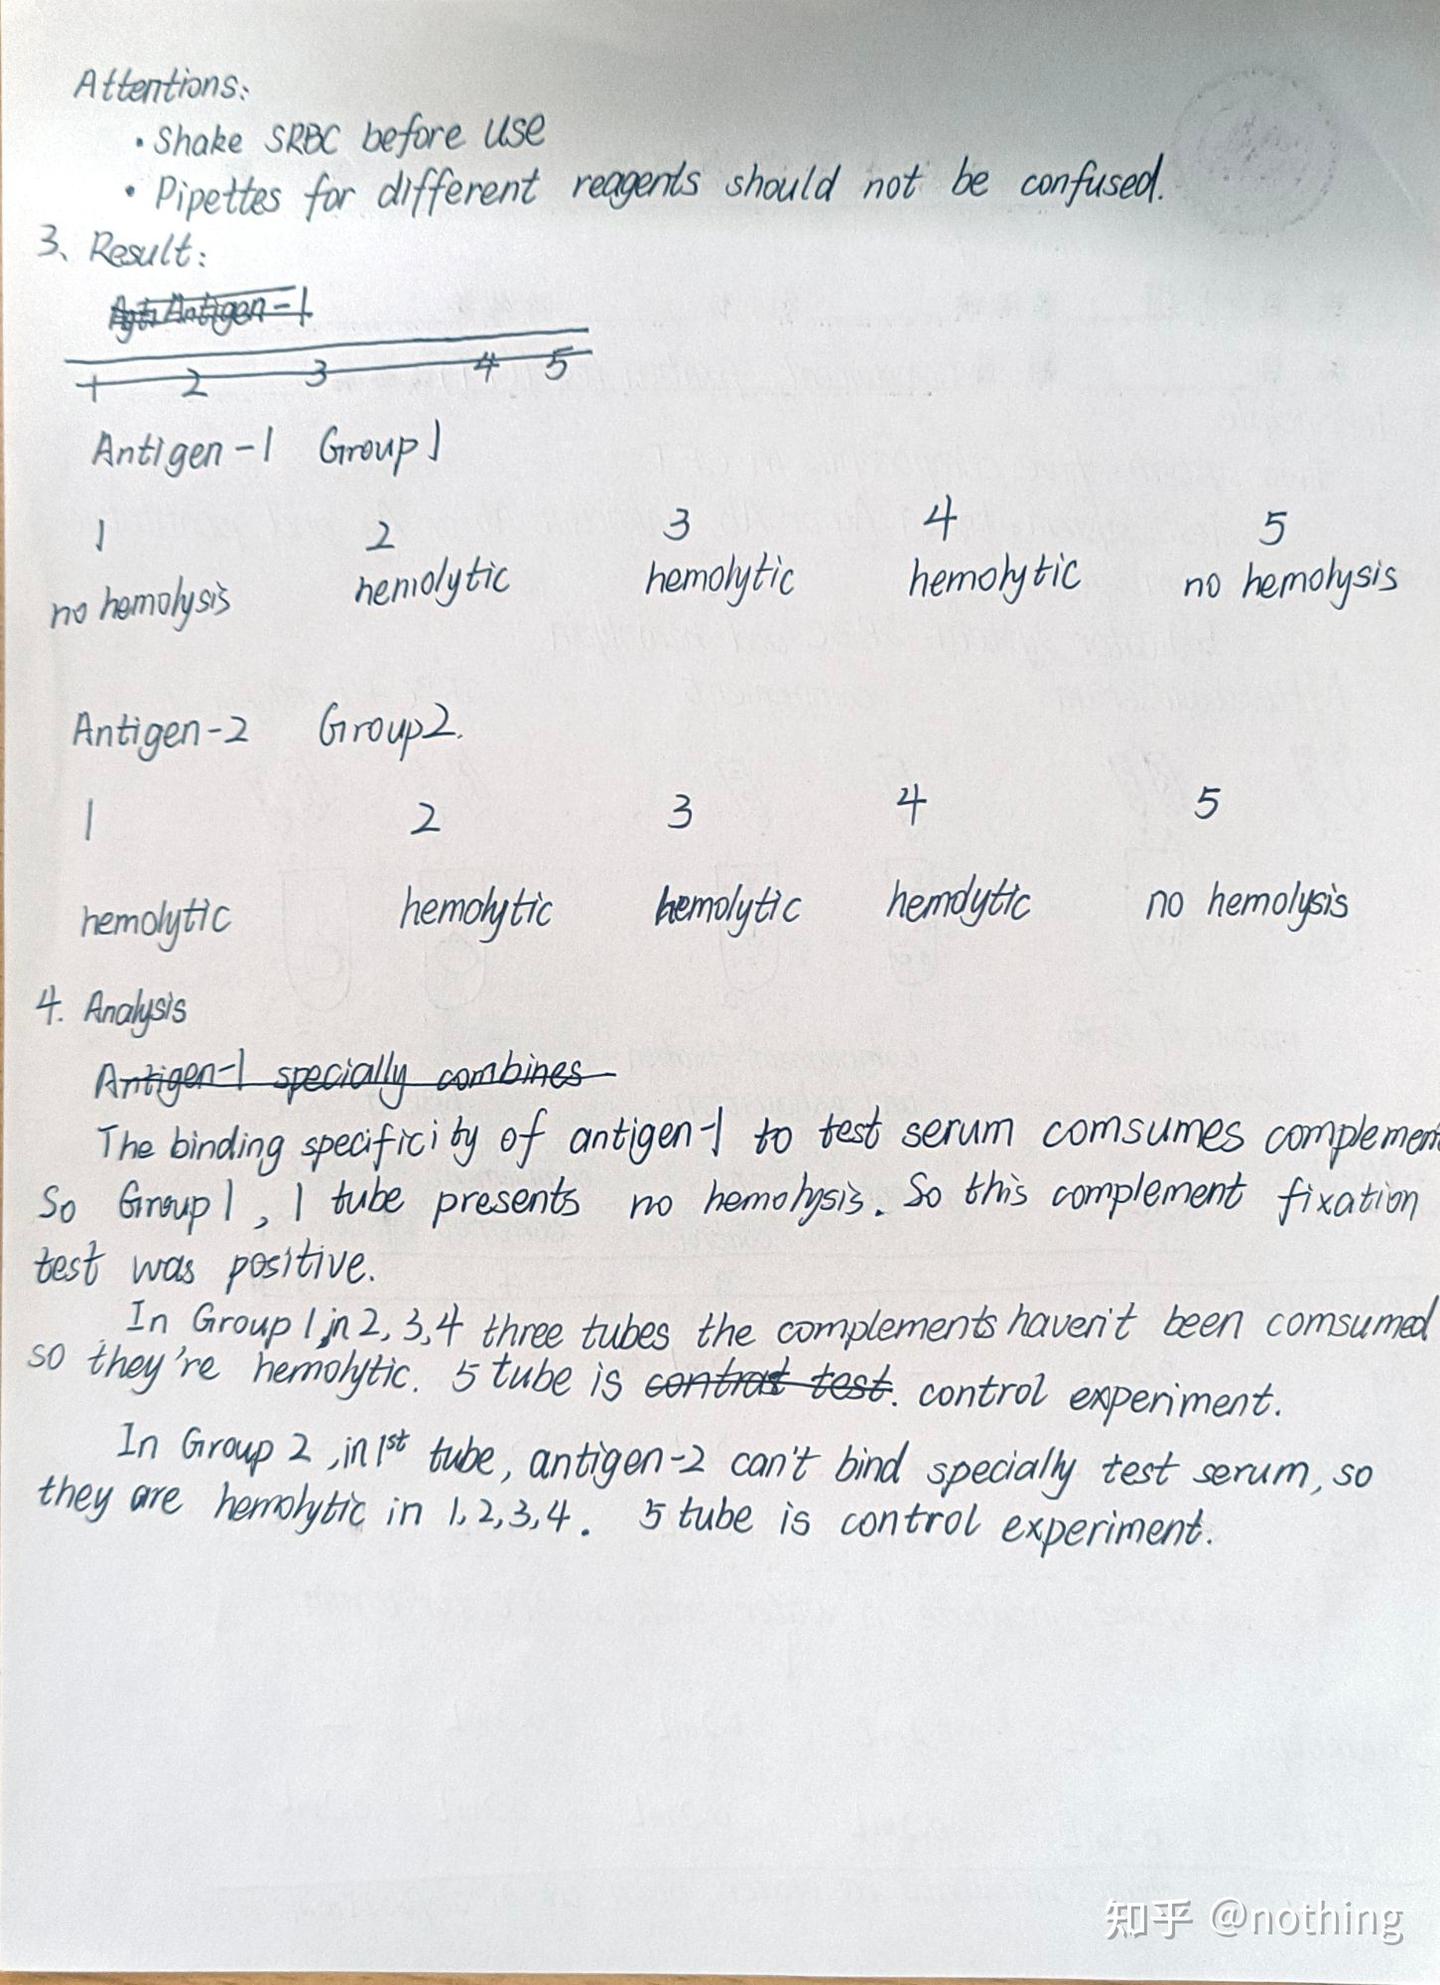 Attentions:
· Shake SRBC before use
· Pipettes for different reagents should not be confused.
3、Result:
Antigen-1
1 2 3 4 5
Antigen-1 Group 1
1 2 3 4 5
no hemolysis hemolytic hemolytic hemolytic no hemolysis
Antigen-2 Group2.
1 2 3 4 5
hemolytic hemolytic hemolytic hemolytic no hemolysis
4. Analysis
Antigen-1 specially combines
The binding specificity of antigen-1 to test serum comsumes complement
So Group 1, 1 tube presents no hemolysis. So this complement fixation
test was positive.
In Group 1, in 2, 3, 4 three tubes the complements haven't been comsumed
so they're hemolytic. 5 tube is contrast test. control experiment.
In Group 2, in 1st tube, antigen-2 can't bind specially test serum, so
they are hemolytic in 1, 2, 3, 4. 5 tube is control experiment.
知乎 @nothing